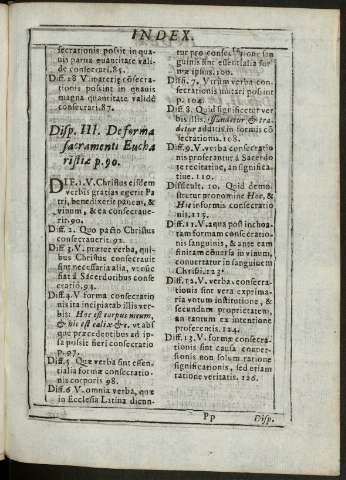 INDEX.
secrationis possit in quauis parua quantitate valide consecrari.85.
Diff. 18 V. materie cōsecrationis possint in quauis magna quantitate validè consecrari.87.
Disp. III. De forma
sacramenti Eucha
ristiæ p.90.
DIF.1.V. Christus eisdem
verbis gratias egerit Patri, benedixerit panem, &
vinum, & ea consecrauerit.90.
Diff. 2. Quo pacto Christus
consecrauerit.92.
Diff 3.V. præter verba, quibus Christus consecrauit
sint necessaria alia, vt consiat à Sacerdotibus consecratio.94.
Diff.4.V forma consecrationis ita incipiat ab illis verbis: Hoc est corpus meum,
& hic est calix &c. vt absque præcedentibus ad ipsa possit fieri consecratio
p.97.
Diff.5 Quæ verba sint essentialia formæ consecrationis corporis 98.
Diff.6 V. omnia verba, quæ
in Ecclesia Latina dicun-
tur pro consecratione sanguinis sint essentialia formæ ipsius.100.
Diff. 7. Vtrum verba consecrationis mutari possint
p. 104.
Diff 8. Quid significetur verbis illis. effundetur & tradetur additis in formis cō
secrationis.108.
Diff.9.V. verba consecrationis proferantur à Sacerdote recitatiue, an significatiue. 110.
Difficult. 10. Quid demonstretur pronomine Hoc, &
Hic in formis consecrationis.115.
Diff.11.V. aqua post inchoatam formam consecrationis sanguinis, & ante eam
finitam cōuersa in vinum,
conuertatur in sanguinem
Christi.123.
Diff.12.V. verba, consecrationis sint vera ex primaria votum institutione, &
secundum proprietatem,
an tantum ex intentione
proferentis. 124.
Diff.13.V. formæ consecrationis sint causa conuersionis non solum ratione
significationis, sed etiam
ratione veritatis. 126.
Pp
Disp.